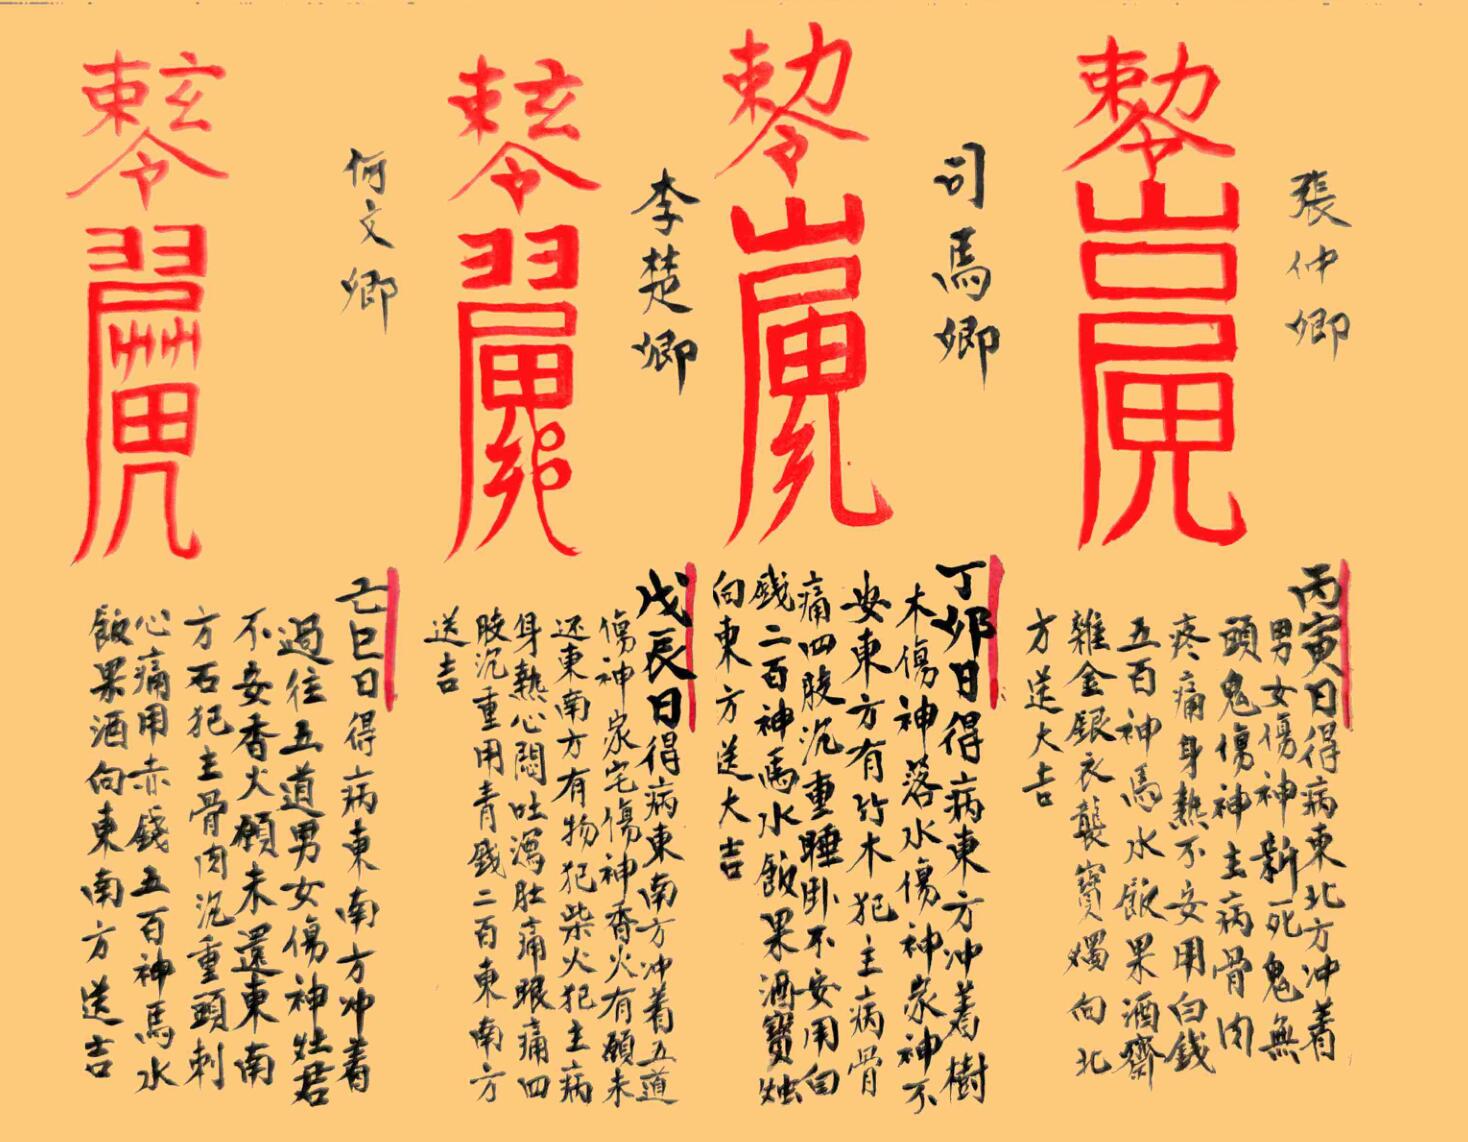 張仲卿
敕令
丙寅日得病東北方冲着
男女傷神新死鬼無
頭鬼傷神主病骨肉
疼痛身熱不安用白銭
五百神馬水飯果酒齋
雜金銀衣襲寳燭向北
方送大吉
司馬卿
敕令
丁卯日得病東方冲着樹
木傷神落水傷神家神不
安東方有竹木犯主病骨
痛四肢沉重睡卧不安用白
銭二百神馬水飯果酒寳烛
向東方送大吉
李楚卿
敕令
戊辰日得病東南方冲着五道
傷神家宅傷神香火有願未
还東南方有物犯柴火犯主病
身熱心悶吐瀉肚痛眼痛四
肢沉重用青銭二百東南方
送吉
何文卿
敕令
己巳日得病東南方冲着
過往五道男女傷神灶君
不安香火願未還東南
方石犯主骨肉沉重頭刺
心痛用赤錢五百神馬水
飯果酒向東南方送吉